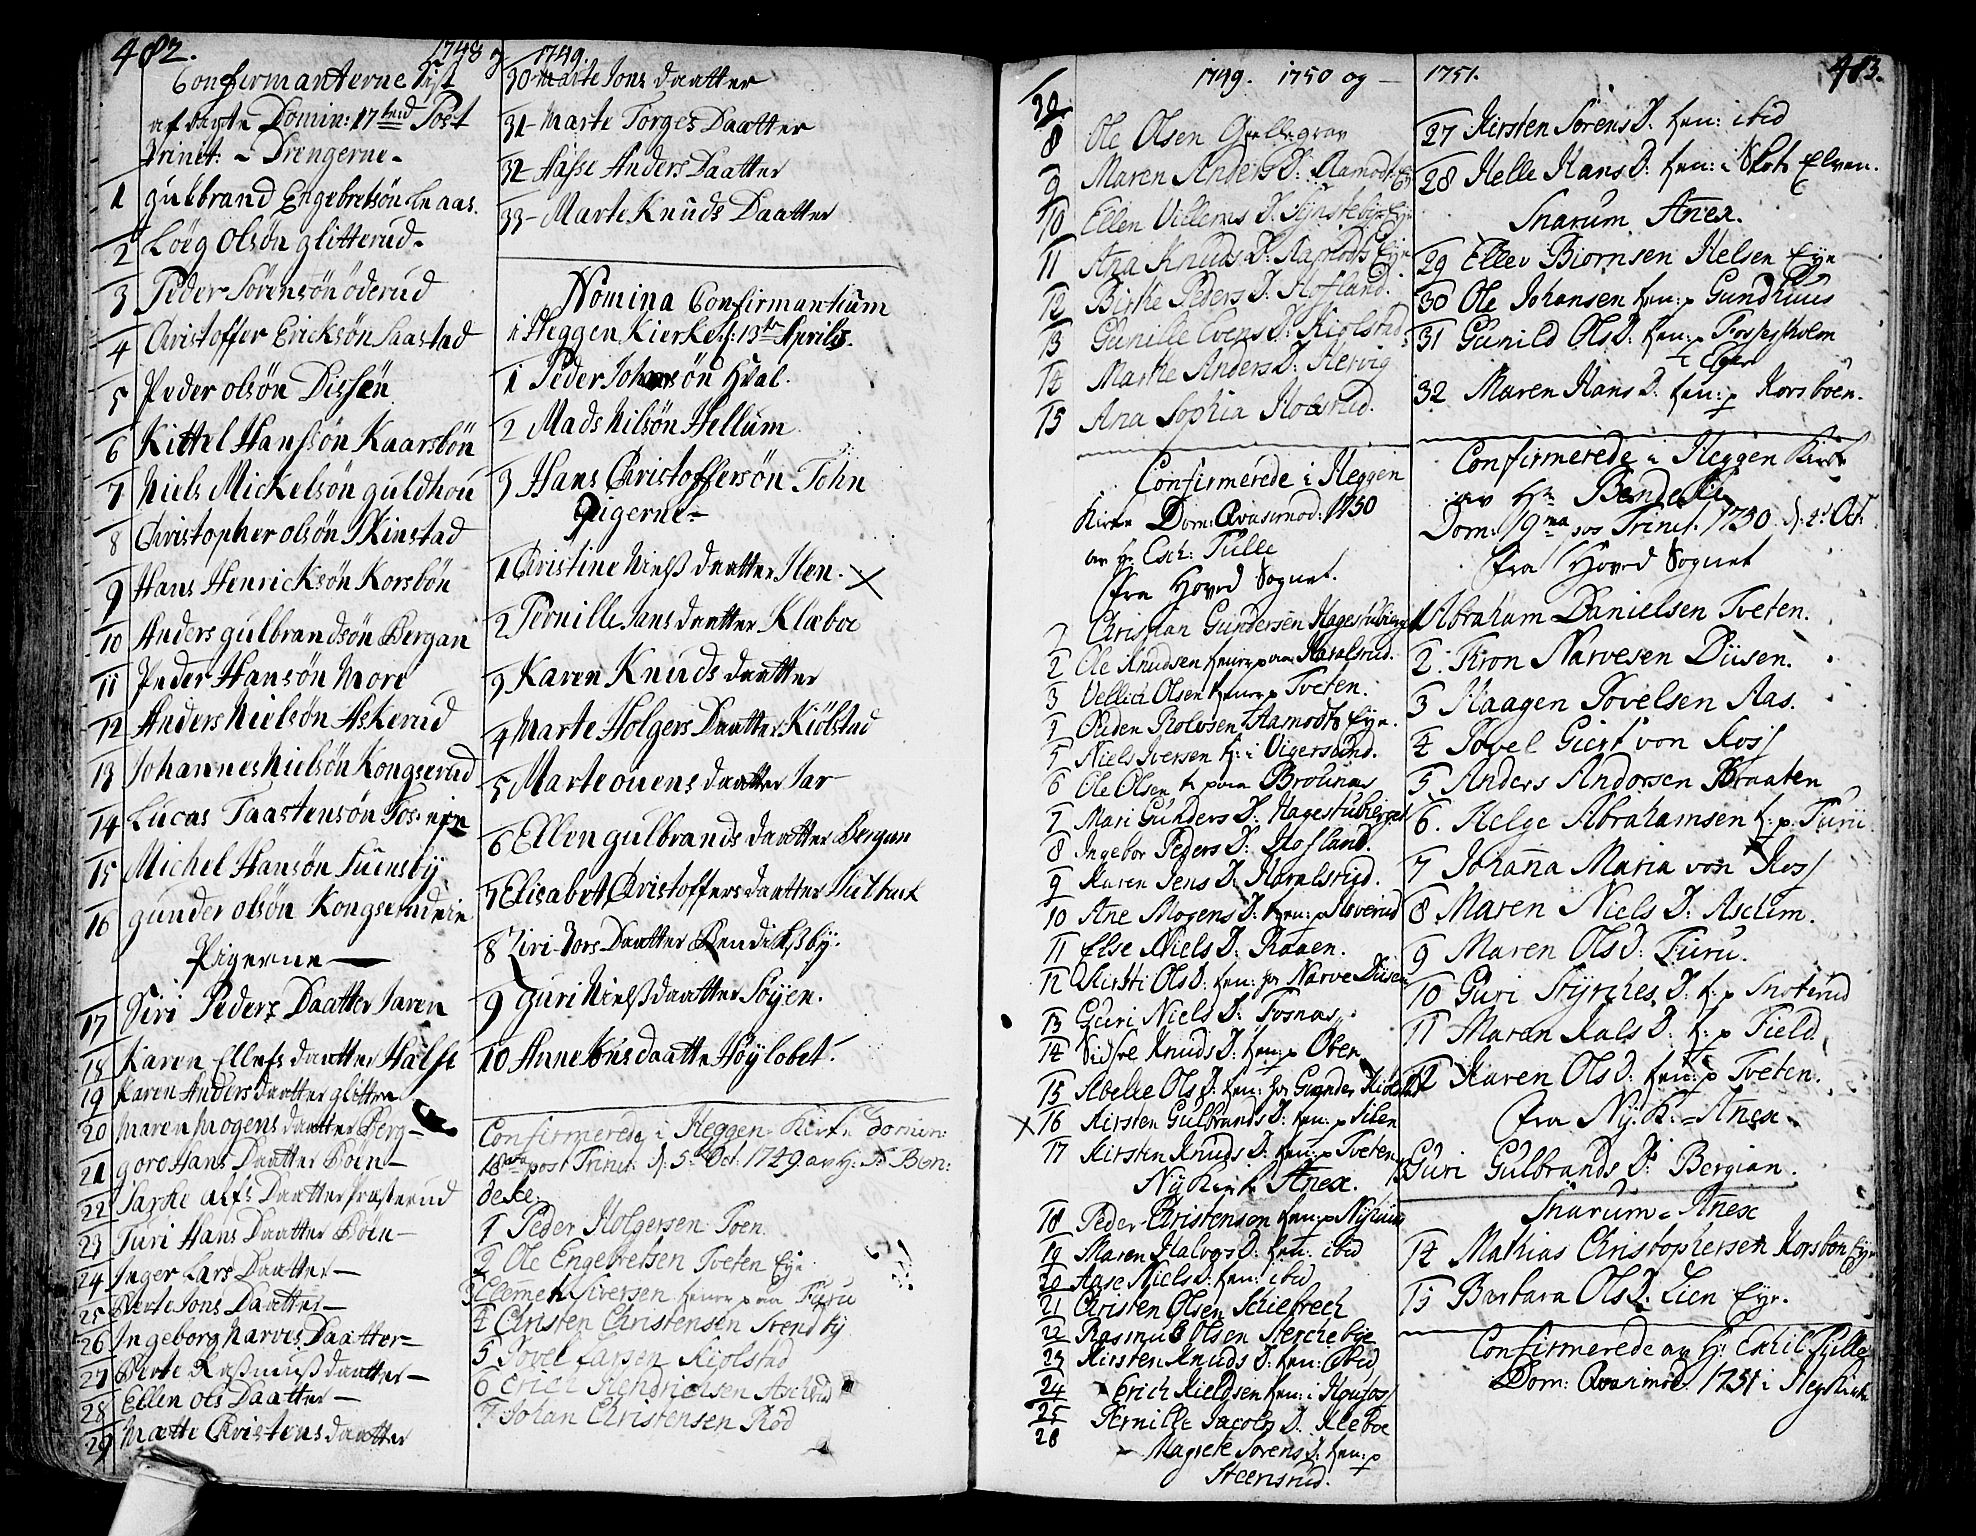 482.
1748 og 1749.
Confirmanterne List
af dagte Domin: 17tend Post
Trinit: - Drengerne -
1 gulbrand Engebretsön Le aas.
2 Loëg Olsön glitterud.
3 Peder Sörensön öderud
4 Christoffer Ericksön Saastad
5 Peder olsön Dissen
6 Kittel Hanssön Kaarsbön
7 Niels Mickelsön guldhou
8 Christopher olsön Skinstad
9 Hans Henricksön Korsbön
10 Anders gulbrandsön Bergan
11 Peder Hansön More
12 Anders Nielsön Askerud
13 Johannes Nielsön Kongserud
14 Lucas Taastensön Fosneje
15 Michel Hansön Suensby
16 gunder olsön Kongserudeie
Pigerne —
17 Siri Peders Daatter Jaren
18 Karen Ellefs daatter Halfst
19 Karen Anders daatter glittre
20 Maren Mogens daatter Berg —
21 goro Hans Daatter Böen —
22 Aarke Alfs Daatter
23 Turi Hans Daatter Böen —
24 Inger Lars Daatter —
25 Berte Jons Daatter —
26 Ingeborg Narves Daatter —
27 Berte Rasmuss daatter —
28 Ellen ols Daatter —
29 Mætte Christens daatter
30 Marte Jons daatter
31 Marte Torges Daatter
32 Aasse Anders Daatter
33 Marte Knuds Daatter
Nomina Confirmantium
i Heggen Kierke d: 13de Aprilis.
1 Peder Johansön Hval.
2 Mads Nilsön Hellum
3 Hans Christoffersön Tohn
Pigerne -
1 Christine Nielss daatter Ilen. X
2 Pernille Jans daatter Klæboe
3 Karen Knuds daatter
4 Marte Holgers Daatter Kiölstad
5 Marte ouens daatter Jar
6 Ellen gulbrands daatter Bergan
7 Elisabet Christoffers daatter
8 Ziri Jors Daatter Bendikssby.
9 guri Nielss daatter Söyen.
10 Anne Jons daatte Höylobet.
Confirmerede i Heggen Kirke domin:
18va post Trinit: d: 5te Oct: 1749 av H: Ben:
deke.
1 Peder Holgersen Toen
2 Ole Engebretsen Tveten Eye
3 Clemet Siversen henne paa Furu
4 Christen Christensen Stendby
5 Tovel Larsen Kiolstad
6 Erich Hendrichsen Askerud
7 Johan Christensen Röd
1749. 1750 og — 1751.
483.
8 Ole Olsen Grellegrav
9 Maren Anders D: Aamodts E
10 Ellen Villems D:
11 Ana Knuds D: Aamodts Eye
12 Birthe Peders D: Hofland.
13 Gunille Evens D: Kiolstad
14 Marthe Anders D: Hervig
15 Ana Sophia Holstad.
Confirmerede i Heggen
Kirke Dom: Qvasimod: 1750
av H: Esch: Tulle
fra Hoved Sognet.
1 Christian Gundersen Hagestubierget
2 Ole Knudsen henne paa Haralsrud.
3 Vellici Olsen henne p Tveten.
4 Auden Rolvsen Aamodts Eye.
5 Niels Iversen h: i Vigersund.
6 Ole Olsen h paa Brolinas
7 Mari Gunders D: Hagestubierget
8 Ingebor Peders D: Hofland.
9 Karen Jens D: Haralsrud.
10 Ane Mogens D: hen: p Asverud
11 Else Niels D: Raaen.
12 Kirsti Ols D: hen: hos Narve Diisen
13 Guri Niels D: Fosnas.
14 Sidsre Knuds D: hen: p Oben
15 Abelke Ols D: hen: hos Gunder Kiolstad
X 16 Kirsten Gulbrands D: hen: p Hilen
17 Kirsten Knuds D: hen: p Tveten
Nykirke Anex.
18 Peder Christensen hen: p Nyhuus
19 Maren Halvors D: hen: ibid
20 Aase Niels D: hen: ibid
21 Christen Olsen Schiebrech
22 Rasmus Olsen Sterchebye
23 Kirsten Knuds D: hen: ibid
24 Erich Kieldsen hen: i
25 Pernille Jacobs D: Kleboe
26 Magrete Sorens D: hen: p
Steensrud.
27 Kirsten Sörens D: hen: ibid
28 Helle Hans D: hen: i Slots Elven.
Snarum Anex.
29 Ellev Biornsen Helsen Eye
30 Ole Johansen hen: p Gundhuus
31 Gunild Ols D: hen: p Fossesholm
i Eger
32 Maren Hans D: hen: p Korsboen.
Confirmerede i Heggen Kirke
av Hr Bendeke
Dom: 19ma pos Trinit. 1750 d: 4 Oct
fra Hoved Sognet
1 Abraham Danielsen Tveten.
2 Tron Narvesen Diisen.
3 Haagen Tovelsen Aas.
4 Povel Giert von Koss
5 Anders Andersen Braaten
6. Helge Abrahamsen h: p: Furu
7 Johanna Maria von Koss
8 Maren Niels D: Asclim.
9 Maren Ols D: Furu.
10 Guri Styrches D: h: p Snoterud
11 Maren Kals D: h: p Field
12 Karen Ols D: hen: p Tveten.
fra Ny: K: Anex
13 Guri Gulbrands D: Bergian.
Snarum Anex
14 Mathias Christophersen Korsbön Eye
15 Barbara Ols D: Lien Eye.
Confirmerede av Hr Eschil Tulle
Dom: Qvasimod 1751 i Heg: Kirke